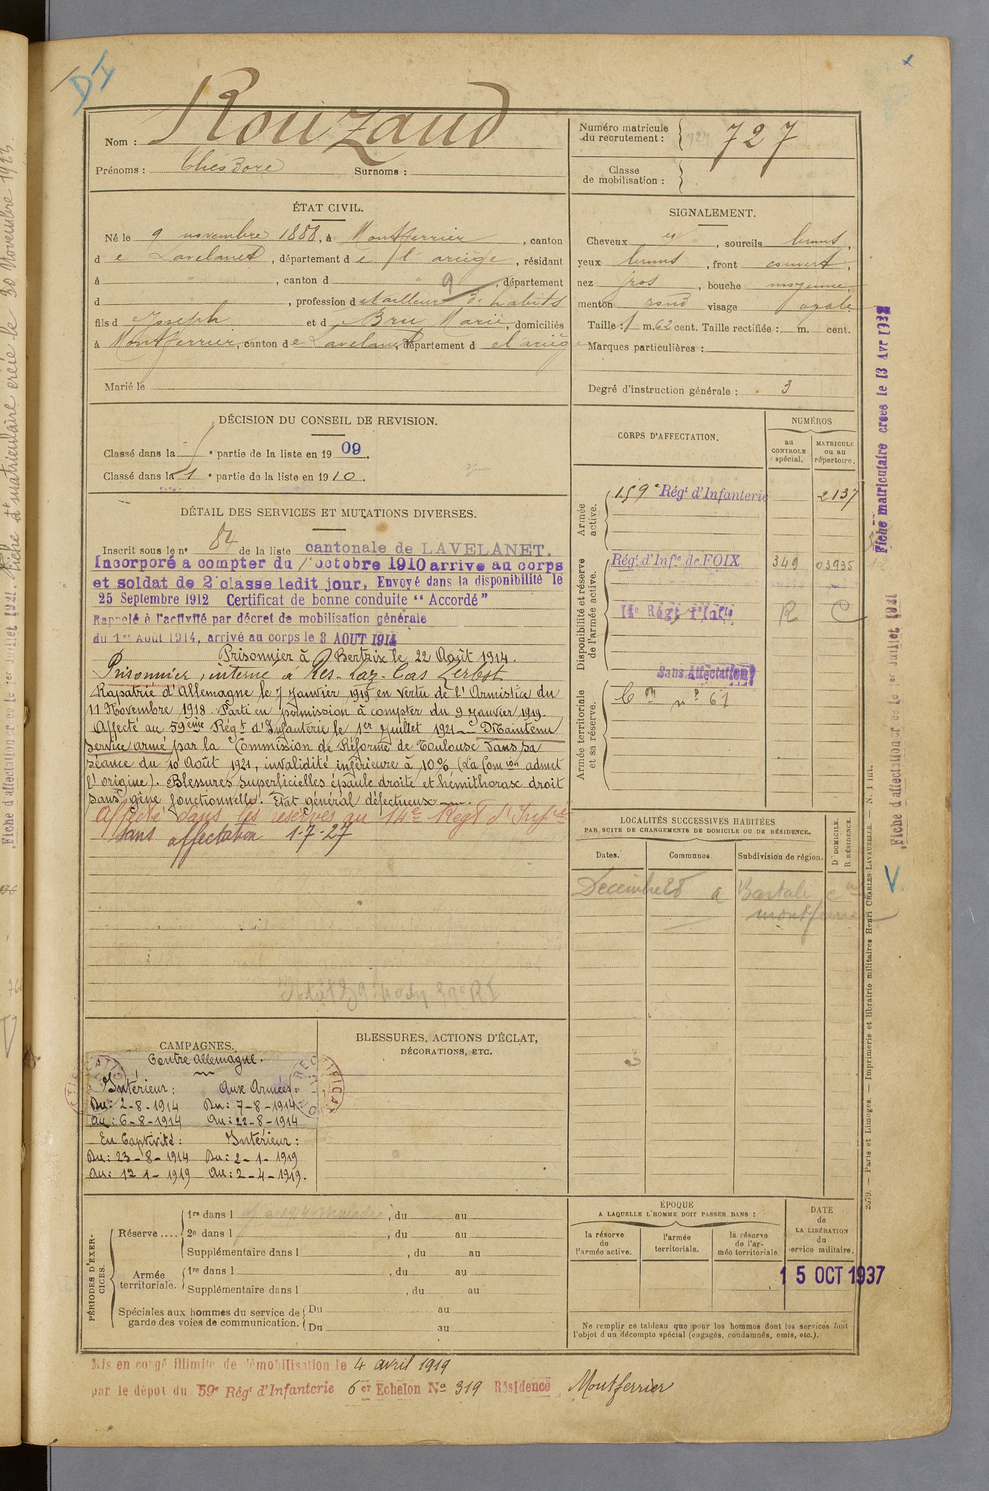 Nom : Rouzaud
Prénoms : Théodore Surnoms :
Numéro matricule du recrutement : 727
Classe de mobilisation :
ÉTAT CIVIL.
Né le 9 novembre 1888, à Montferrier, canton
de Lavelanet, département de l'ariège, résidant
à , canton d , département
d , profession de tailleur d'habits
fils d Joseph et d Bru Marie, domiciliés
à Montferrier, canton de Lavelanet, département d el'ariège
Marié le
SIGNALEMENT.
Cheveux et, sourcils bruns,
yeux bruns, front couvert,
nez gros, bouche moyenne,
menton rond visage ovale
Taille : 1 m. 62 cent. Taille rectifiée : m. cent.
Marques particulières :
Degré d'instruction générale : 3
DÉCISION DU CONSEIL DE REVISION.
Classé dans la 1e partie de la liste en 1909.
Classé dans la 1e partie de la liste en 1910.
DÉTAIL DES SERVICES ET MUTATIONS DIVERSES.
Inscrit sous le n° 84 de la liste cantonale de LAVELANET.
Incorporé a compter du 1 octobre 1910 arrive au corps
et soldat de 2e classe ledit jour, Envoyé dans la disponibilité le
25 Septembre 1912 Certificat de bonne conduite "Accordé"
Rappelé à l'activité par décret de mobilisation générale
du 1er Août 1914, arrivé au corps le 3 AOUT 1914
Prisonnier à Bertrix le 22 Août 1914.
Prisonnier, interné à Res-Laz-Cas Zerbst
Rapatrié d'Allemagne le 7 Janvier 1919 en vertu de l'Armistice du
11 Novembre 1918. Parti en permission à compter du 9 Janvier 1919.
Affecté au 59ème Régt d'Infanterie le 1er Juillet 1921 — Maintenu
service armé par la Commission de Réforme de Toulouse dans sa
séance du 10 Août 1921, invalidité inférieure à 10% (La Comion admet
l'origine). Blessures superficielles épaule droite et hémithorax droit
sans gêne fonctionnelle. Etat général défectueux —
Affecté dans les réserves au 14e Regt d'Infie
Sans affectation 1-7-27
CORPS D'AFFECTATION.
NUMÉROS
au CONTROLE spécial.
MATRICULE ou au répertoire.
Armée active.
159e Régt d'Infanterie 2137
Disponibilité et réserve de l'armée active.
Régt d'Infie de FOIX 349 03935
14e Régt d'Infie R C
Sans Affectation
Armée territoriale et sa réserve.
Con n° 61
LOCALITÉS SUCCESSIVES HABITÉES
PAR SUITE DE CHANGEMENTS DE DOMICILE OU DE RÉSIDENCE.
Dates. Communes. Subdivision de région.
D DOMICILE. R RÉSIDENCE.
Decembre 28 a
montferrier
CAMPAGNES.
Contre Allemagne.
Intérieur : Aux Armées :
Du : 2-8-1914 Du : 7-8-1914
Au : 6-8-1914 Au : 22-8-1914
En Captivité : Intérieur :
Du : 23-8-1914 Du : 2-1-1919
Au : 1-1919 Au : 2-4-1919.
BLESSURES, ACTIONS D'ÉCLAT,
DÉCORATIONS, ETC.
PÉRIODES D'EXERCICES.
Réserve....
1re dans l , du au
2e dans l , du au
Supplémentaire dans l , du au
Armée territoriale.
1re dans l , du au
Supplémentaire dans l , du au
Spéciales aux hommes du service de garde des voies de communication.
Du au
Du au
ÉPOQUE
A LAQUELLE L'HOMME DOIT PASSER DANS :
la réserve de l'armée active.
l'armée territoriale.
la réserve de l'armée territoriale.
DATE de LA LIBÉRATION du service militaire.
15 OCT 1937
Ne remplir ce tableau que pour les hommes dont les services font
l'objet d'un décompte spécial (engagés, condamnés, omis, etc.).
Mis en congé illimité de démobilisation le 4 avril 1919
par le dépôt du 59e Régt d'Infanterie 6er Echelon No 319 Résidence Montferrier
Fiche matriculaire créée le 13 Avr 1932
Fiche d'affectation créée le 1er Juillet 1921
2579. — Paris et Limoges. — Imprimerie et librairie militaires Henri CHARLES-LAVAUZELLE. — N. 1 int.
Fiche d'affectation créée le 1er Juillet 1921. Fiche matriculaire créée le 30 Novembre 1923.